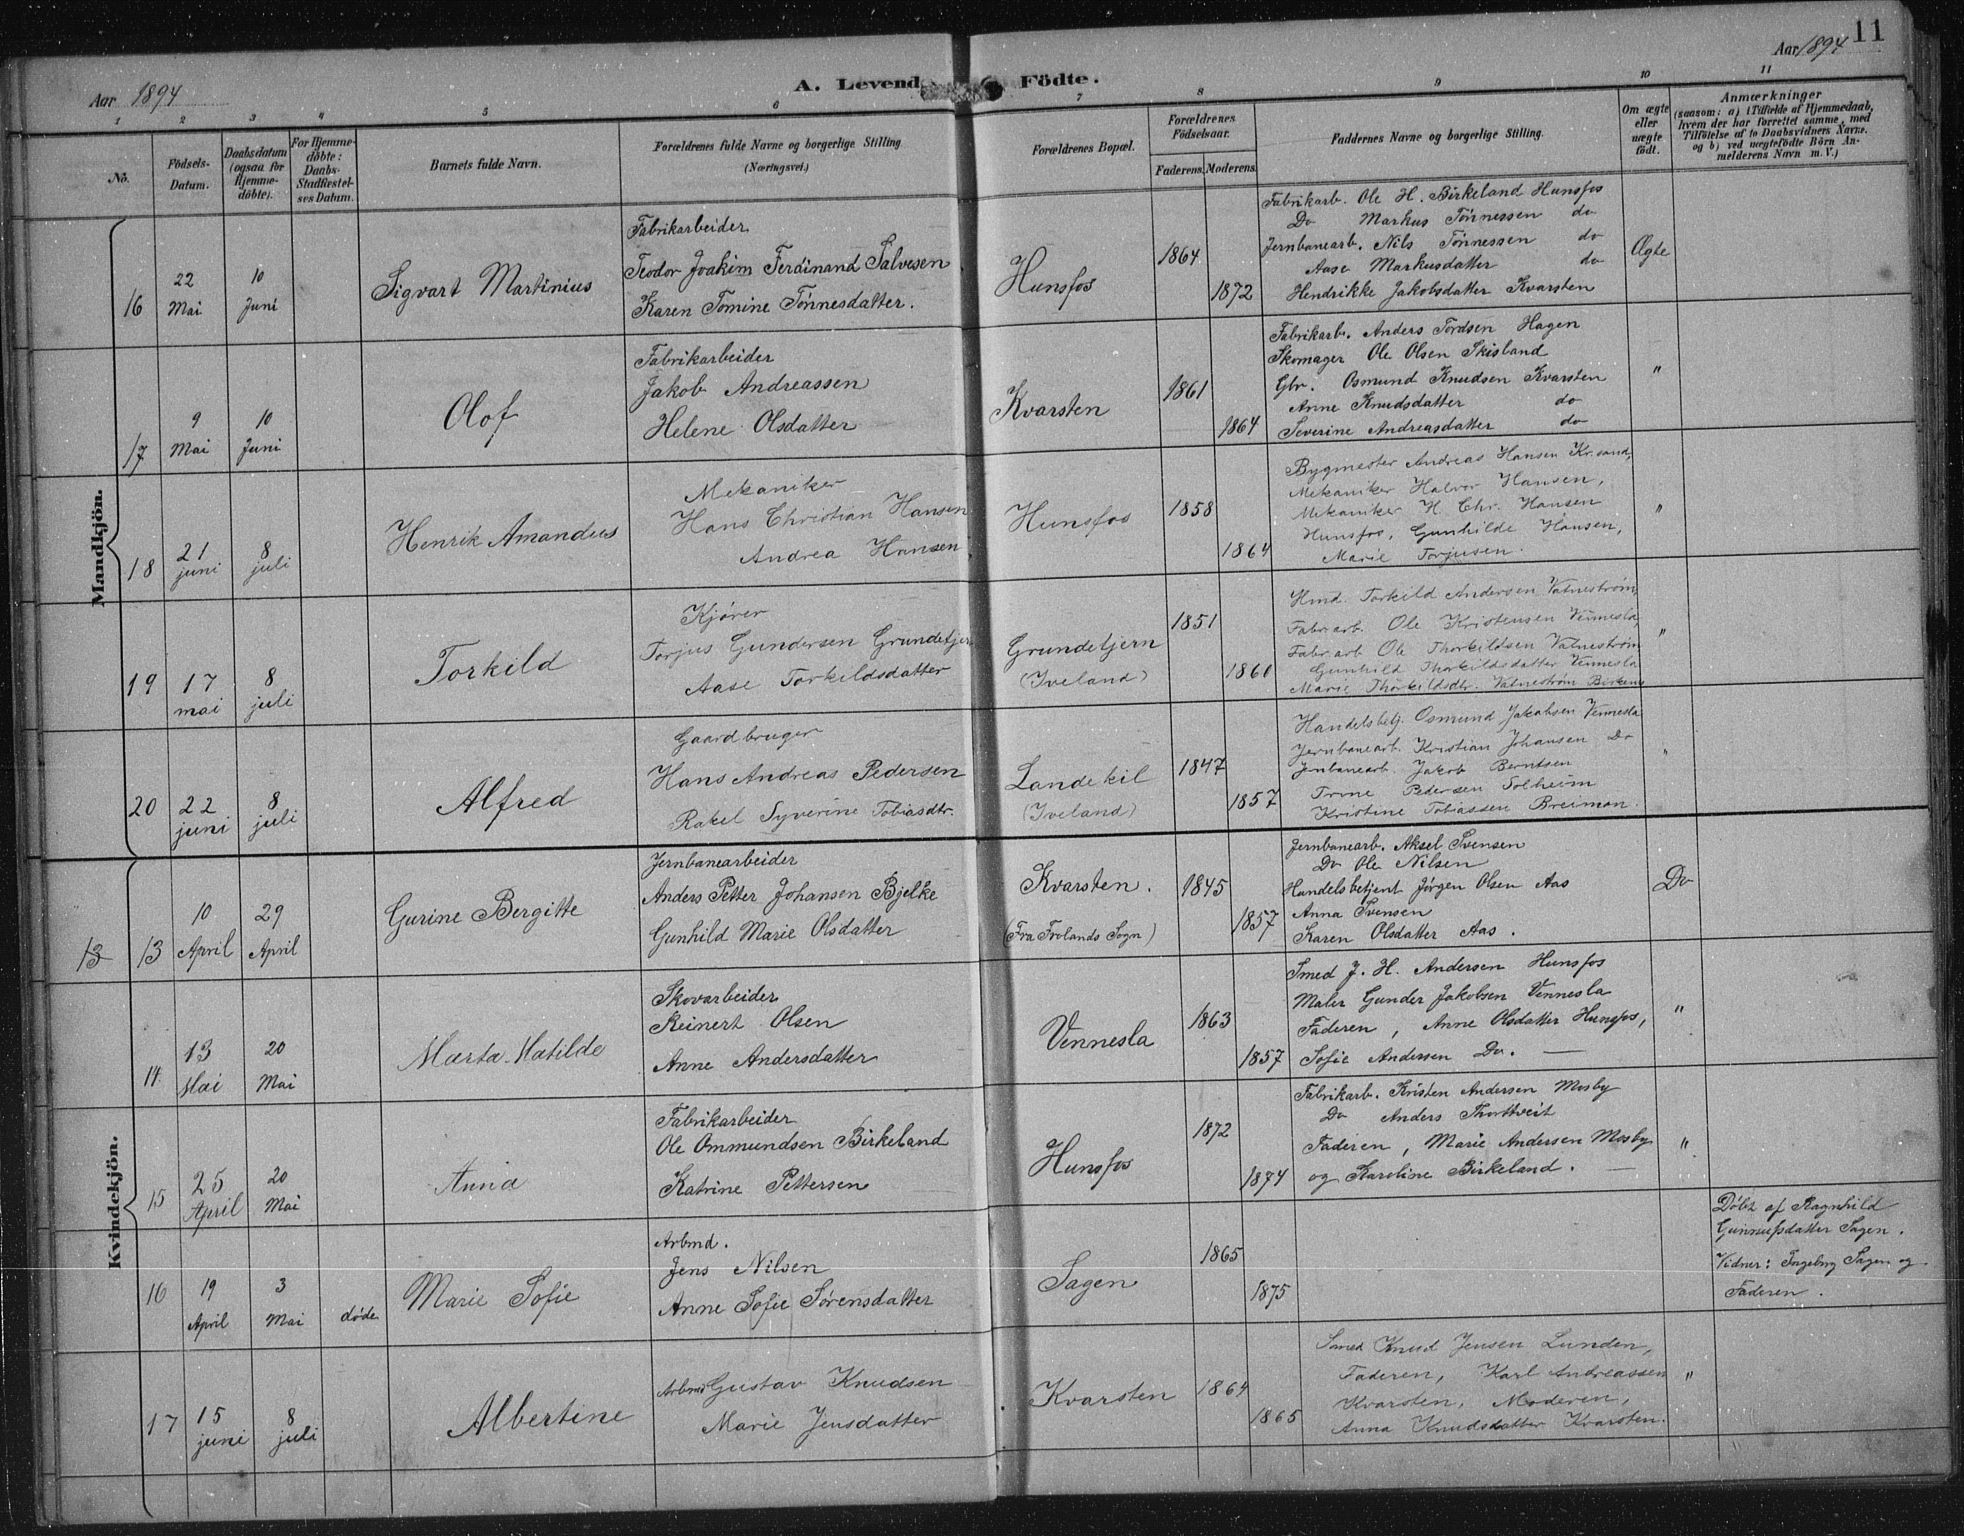 11
Aar 1894
A. Levend Födte.
Aar 1894
1 2 3 4 5 6 7 8 9 10 11
No.
Födsels-Datum.
Daabsdatum (ogsaa for Hjemme-döbte).
For Hjemme-döbte: Daabs-Stadfæstel-ses Datum.
Barnets fulde Navn.
Forældrenes fulde Navne og borgerlige Stilling
(Næringsvei.)
Forældrenes Bopæl.
Forældrenes Födselsaar.
Faderens. Moderens.
Faddernes Navne og borgerlige Stilling.
Om ægte eller uægte födt.
Anmærkninger
(saasom: a) i Tilfælde af Hjemmedaab,
hvem der har forrettet samme, med
Tilföielse af to Daabsvidners Navne.
og b) ved uægtefödte Börn An-
melderens Navn m. V.)
Mandkjön.
16
22 Mai
10 Juni
Sigvart Martinius
Fabrikarbeider
Teodor Joakim Ferdinand Salvesen
Karen Tomine Tønnesdatter.
Hunsfos
1864
1872
Fabrikarb. Ole H. Birkeland Hunsfos
Do Markus Tønnessen do
Jernbanearb. Nils Tønnessen do
Aase Markusdatter do
Hendrikke Jakobsdatter Kvarsten
Ægte
17
9 Mai
10 Juni
Olof
Fabrikarbeider
Jakob Andreassen
Helene Olsdatter
Kvarsten
1861
1864
Fabrikarb. Anders Tordsen Hagen
Skomager Ole Olsen Skisland
Gbr. Osmund Knudsen Kvarsten
Anne Knudsdatter do
Severine Andreasdatter do
"
18
21 juni
8 juli
Henrik Amandus
Mekaniker
Hans Christian Hansen
Andrea Hansen
Hunsfos
1858
1864
Bygmester Andreas Hansen Kr.sand,
Mekaniker Halvor Hansen,
Mekaniker H. Chr. Hansen
Hunsfos, Gunhilde Hansen,
Marie Torjusen.
"
19
17 mai
8 juli
Torkild
Kjører
Torjus Gundersen Grundetjern
Aase Torkildsdatter
Grundetjern
(Iveland)
1851
1860
Hmd. Torkild Andersen Vatnestrøm
Fabr.arb. Ole Kristensen Vennesla
Fabr.arb Ole Thorkildsen Vatnestrøm
Gunhild Thorkildsdatter Vennesla
Marie Thorkildsdtr. Vatnestrøm Birkenes
"
20
22 juni
8 juli
Alfred
Gaardbruger
Hans Andreas Pedersen
Rakel Syverine Tobiasdtr.
Landekil
(Iveland)
1847
1857
Handelsbetj. Osmund Jakobsen Vennesla
Jernbanearb. Kristian Johansen Do
Jrnbanearb. Jakob Berntsen
Trine Pedersen Solheim
Kristine Tobiassen Breiman.
"
Kvindekjön.
13 13
10 April
29 April
Gurine Bergitte
Jernbanearbeider
Anders Petter Johansen Bjelke
Gunhild Marie Olsdatter
Kvarsten.
(Fra Frolands Sogn)
1845
1857
Jernbanearb. Aksel Svensen
Do Ole Nilsen
Handelsbetjent Jørgen Olsen Aas
Anna Svensen
Karen Olsdatter Aas.
Do
14
13 Mai
20 Mai
Marta Matilde
Skovarbeider
Reinert Olsen
Anne Andersdatter
Vennesla
1863
1857
Smed J. H. Andersen Hunsfos
Maler Gunder Jakobsen Vennesla
Faderen, Anne Olsdatter Hunsfos,
Sofie Andersen Do. —
"
15
25 April
20 Mai
Anna
Fabrikarbeider
Ole Ommundsen Birkeland
Katrine Pettersen
Hunsfos
1872
1874
Fabrikarb. Kristen Andersen Mosby
Do Anders Thortveit
Faderen, Marie Andersen Mosby
og Karoline Birkeland. —
"
16
19 April
3 Mai
døde
Marie Sofie
Arbmd.
Jens Nilsen
Anne Sofie Sørensdatter
Sagen
1865
1875
Døbt af Ragnhild
Gunnufsdatter Sagen.
Vidner: Ingebrg Sagen og
Faderen.
17
15 juni
8 juli
Albertine
Arbmd Gustav Knudsen
Marie Jensdatter
Kvarsten
1864
1865
Smed Knud Jensen Lunden,
Faderen, Karl Andreassen
Kvarsten, Moderen,
Anna Knudsdatter Kvarsten.
"